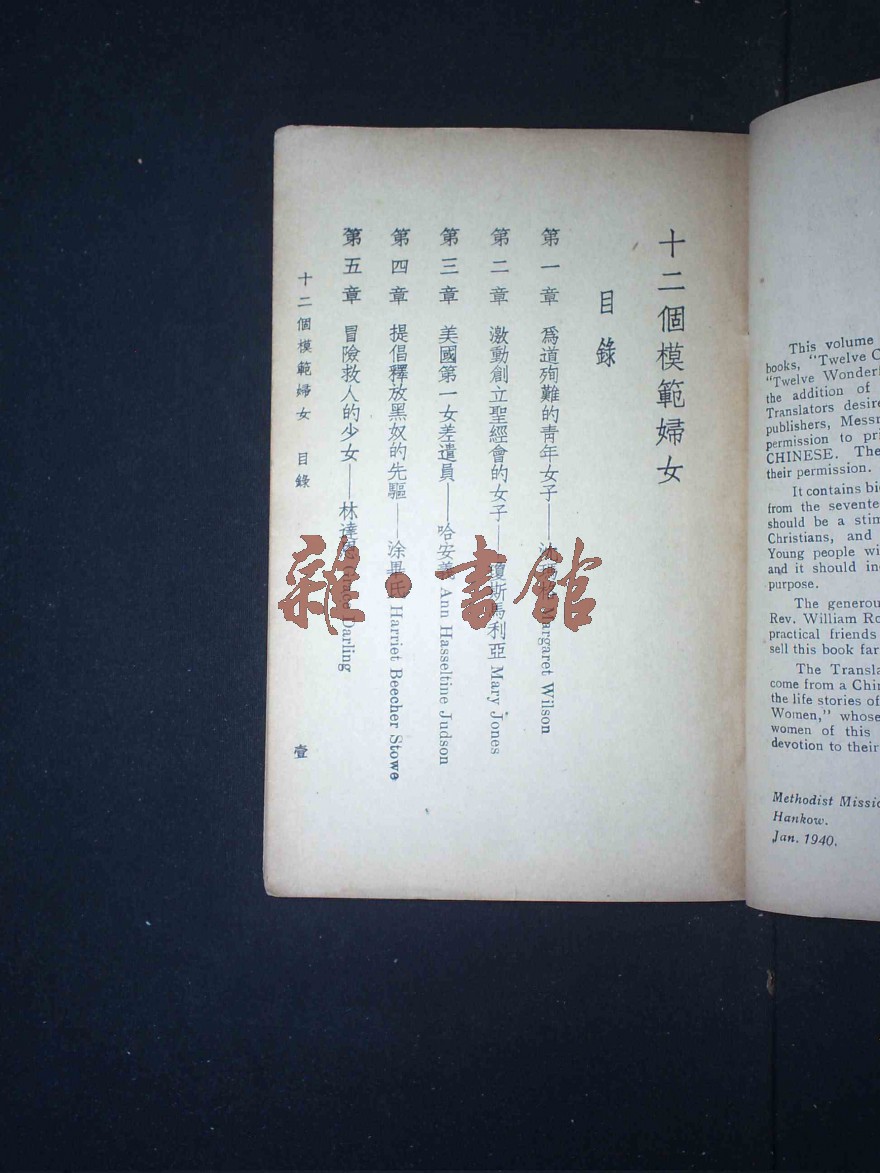 十二個模範婦女
目錄
第一章 爲道殉難的靑年女子——沈 Margaret Wilson
第二章 激動創立聖經會的女子——瓊斯馬利亞 Mary Jones
第三章 美國第一女差遣員——哈安美 Ann Hasseltine Judson
第四章 提倡釋放黑奴的先驅——涂畢氏 Harriet Beecher Stowe
第五章 冒險救人的少女——林達 Grace Darling
十二個模範婦女 目錄
壹
This volume
books, "Twelve
"Twelve
the addition of
Translators desire
publishers,
permission to
CHINESE. The
their permission.
It contains
from the
should be a
Christians, and
Young people
and it should
purpose.
The generous
Rev. William
practical friends
sell this book far
The
come from a
the life stories of
Women," whose
women of this
devotion to their
Methodist
Hankow.
Jan. 1940.
雜·書館